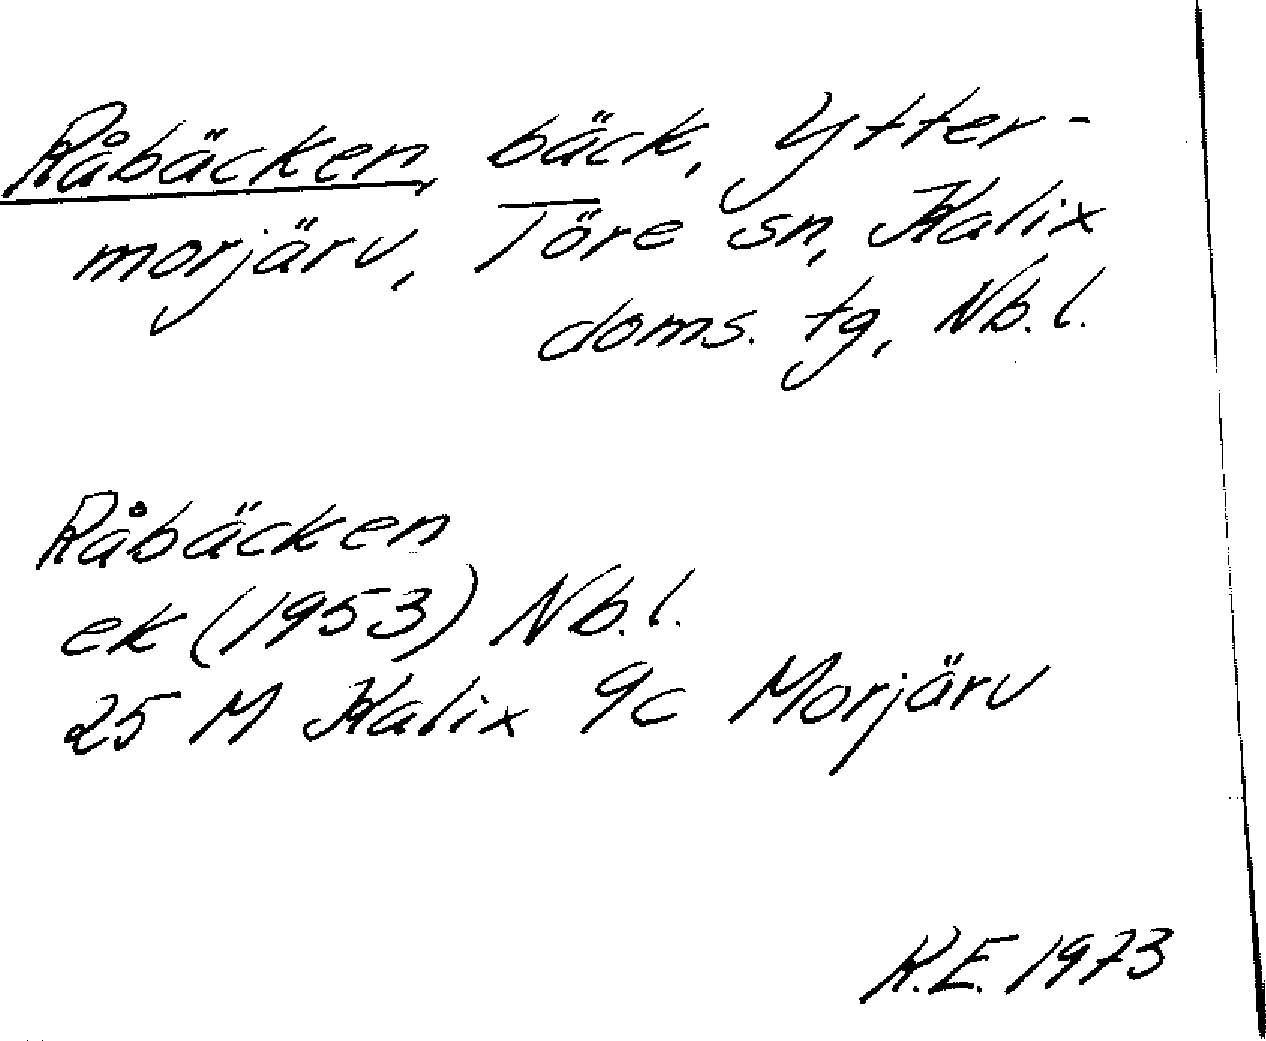 Råbäcken, bäck, Ytter-
morjärv, Töre sn, Kalix
doms. tg, Nb. l.
Råbäcken
ek (1953) Nb. l.
25 M Kalix 9c Morjärv
K.E. 1973